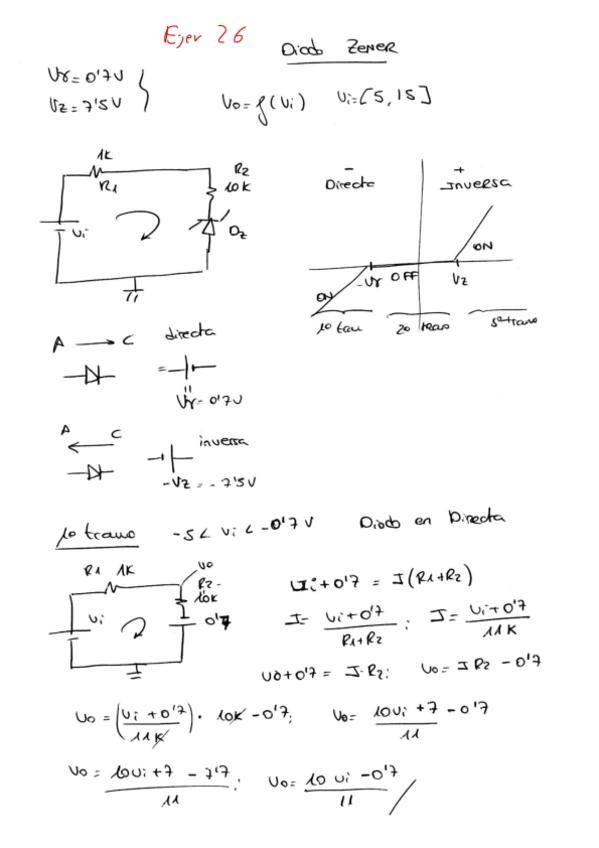 Ejer 26
Diodo ZENER
Vγ = 0'7V
Vz = 7'5V
Vo = f(Vi) Vi = [5, 15]
1K
R1
R2
10K
Vi
Dz
- +
Directa Inversa
ON
-Vγ OFF Vz
ON
1º tramo 2º tramo 3º tramo
A → C directa
=
"
Vγ = 0'7V
A ← C inversa
-Vz = -7'5V
1º tramo -5 < Vi < -0'7V Diodo en Directa
R1 1K
Vo
R2
10K
Vi
0'7
Vi + 0'7 = I(R1+R2)
I = Vi+0'7 / R1+R2 ; I = Vi+0'7 / 11K
Vo+0'7 = I·R2; Vo = I R2 - 0'7
Vo = (Vi + 0'7 / 11K) · 10K - 0'7; Vo = 10Vi + 7 / 11 - 0'7
Vo = 10Vi + 7 - 7'7 / 11 ; Vo = 10 Vi - 0'7 / 11